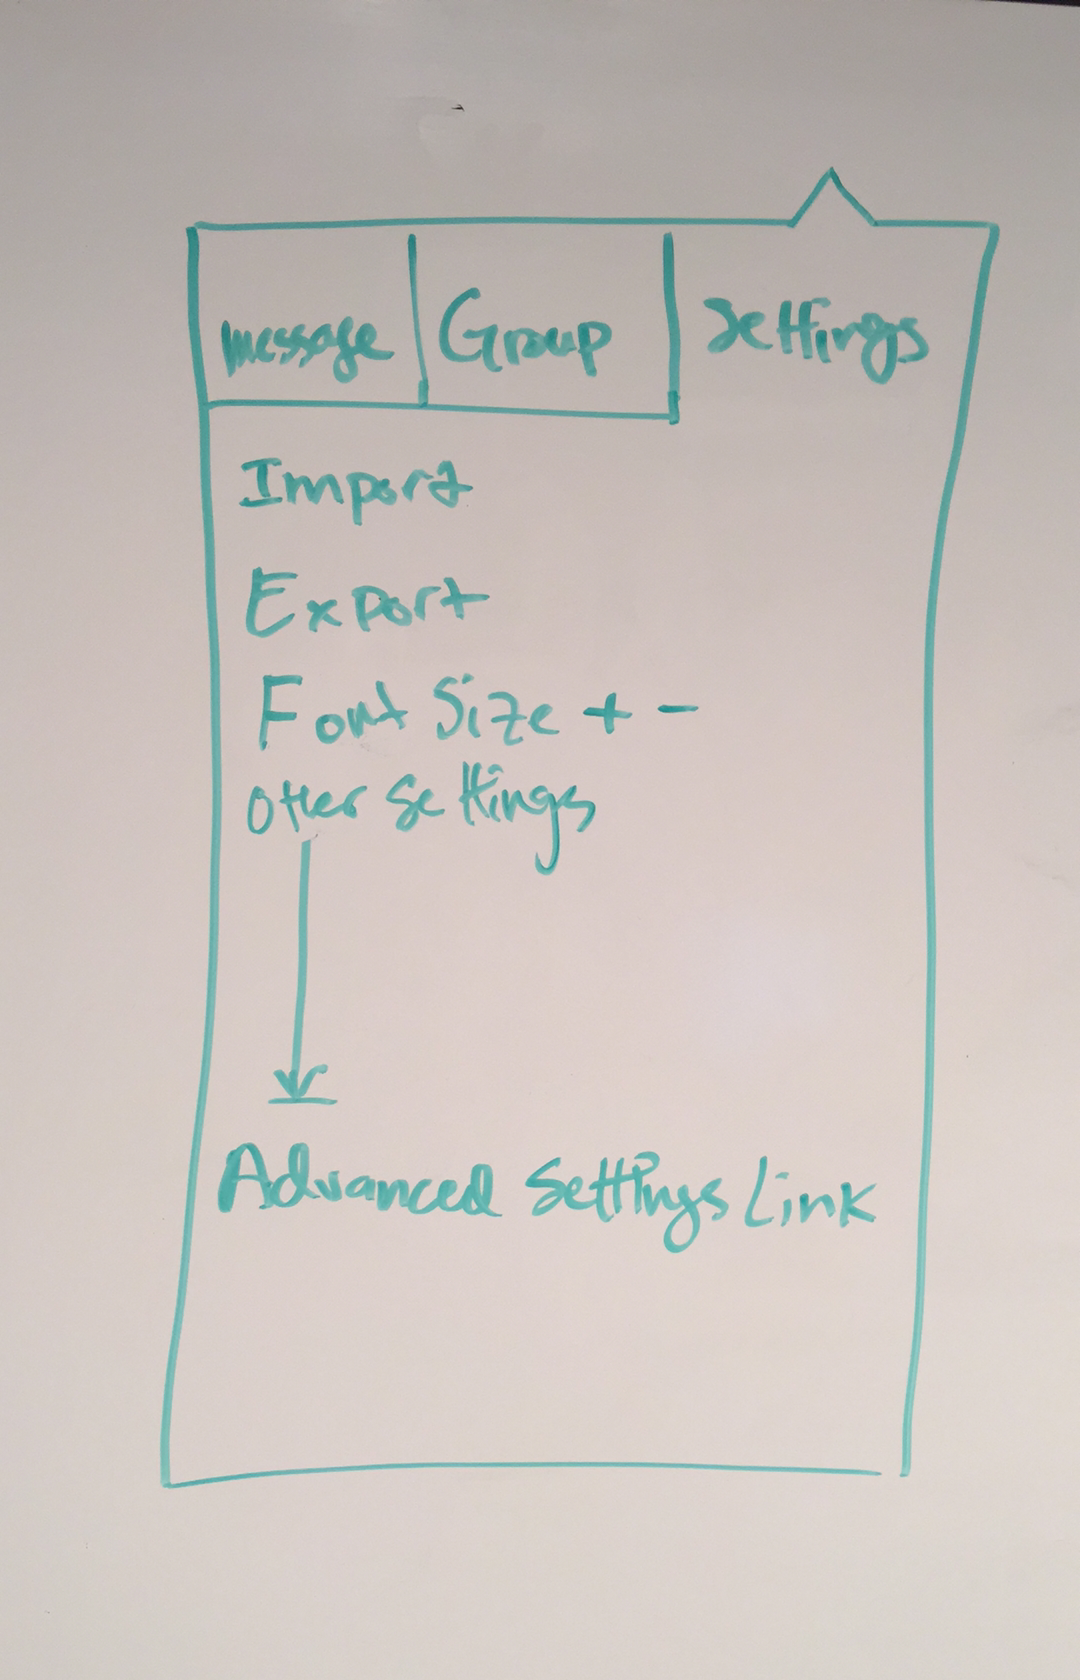 message Group Settings
Import
Export
Font Size + -
Other Settings
Advanced Settings Link